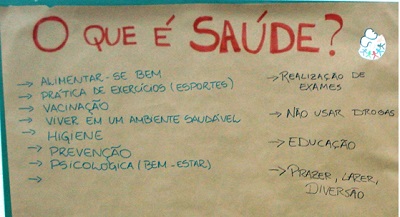 O QUE É SAÚDE?
→ ALIMENTAR-SE BEM
→ PRÁTICA DE EXERCÍCIOS (ESPORTES)
→ VACINAÇÃO
→ VIVER EM UM AMBIENTE SAUDÁVEL
→ HIGIENE
→ PREVENÇÃO
→ PSICOLÓGICA (BEM-ESTAR)
→
→ REALIZAÇÃO DE
EXAMES
→ NÃO USAR DROGAS
→ EDUCAÇÃO
→ PRAZER, LAZER,
DIVERSÃO